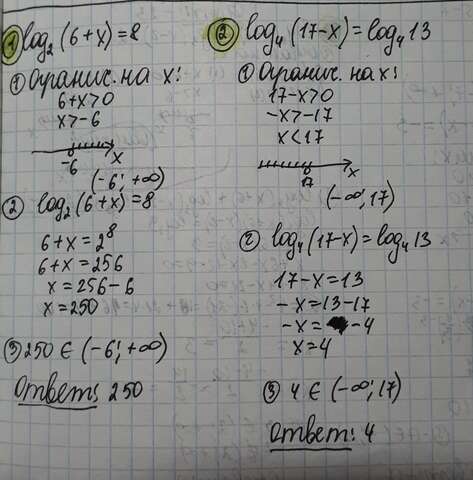 1 log₂(6+x)=8
① Огранич. на x:
6+x>0
x>-6
-6 x
(-6; +∞)
② log₂(6+x)=8
6+x=2⁸
6+x=256
x=256-6
x=250
③ 250 ∈ (-6; +∞)
Ответ: 250
② log₄(17-x)=log₄13
① Огранич. на x:
17-x>0
-x>-17
x<17
17 x
(-∞; 17)
② log₄(17-x)=log₄13
17-x=13
-x=13-17
-x= -4
x=4
③ 4 ∈ (-∞; 17)
Ответ: 4